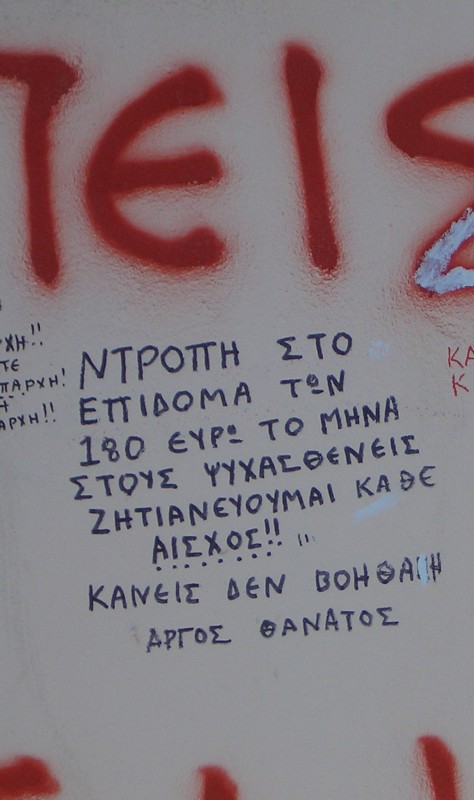 ΠΕΙΣ
ΧΗ!!
ΤΕ
ΠΑΡΧΗ!
ΑΡΧΗ!!
ΚΑ
Κ
ΝΤΡΟΠΗ ΣΤΟ
ΕΠΙΔΟΜΑ ΤΩΝ
180 ΕΥΡΩ ΤΟ ΜΗΝΑ
ΣΤΟΥΣ ΨΥΧΑΣΘΕΝΕΙΣ
ΖΗΤΙΑΝΕΥΟΥΜΑΙ ΚΑΘΕ
ΑΙΣΧΟΣ!!
ΚΑΝΕΙΣ ΔΕΝ
ΑΡΓΟΣ ΘΑΝΑΤΟΣ